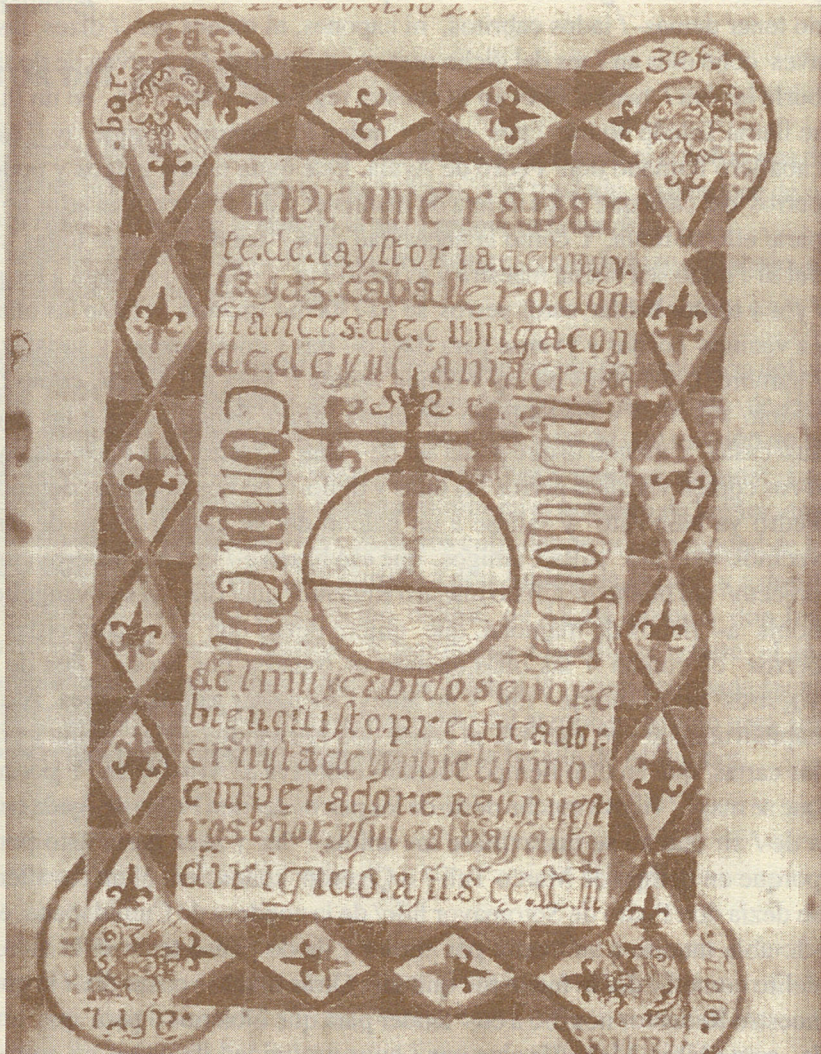 .bor.eas.
.zef.irus.
primera par
te.de.la yſtoria del muy.
ſagaz.caballero.don.
frances.de.çuñiga con
de.de
del muy cebido.señor.e
bien quiſto.predicador.
cronyſta del ynbictiſimo.
emperador.e.rey.nueſt
ro señor.y ſu leal baſſallo.
dirigido.a ſu.
.afri.cus.